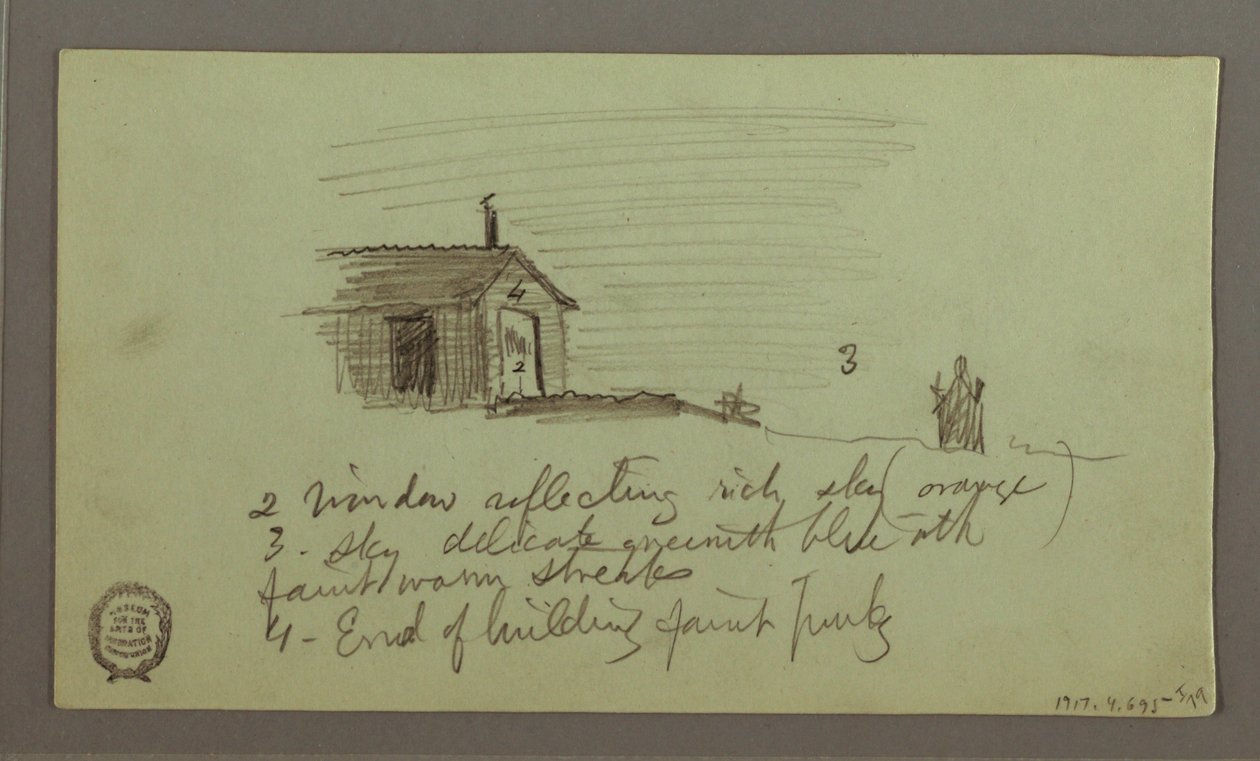 4
2
3
2 Window reflecting rich sky (orange)
3 - sky delicate greenish blue with
faint warm streaks
4 - End of building faint pink
MUSEUM
FOR THE
ARTS OF
DECORATION
COOPER UNION
1917.4.695-